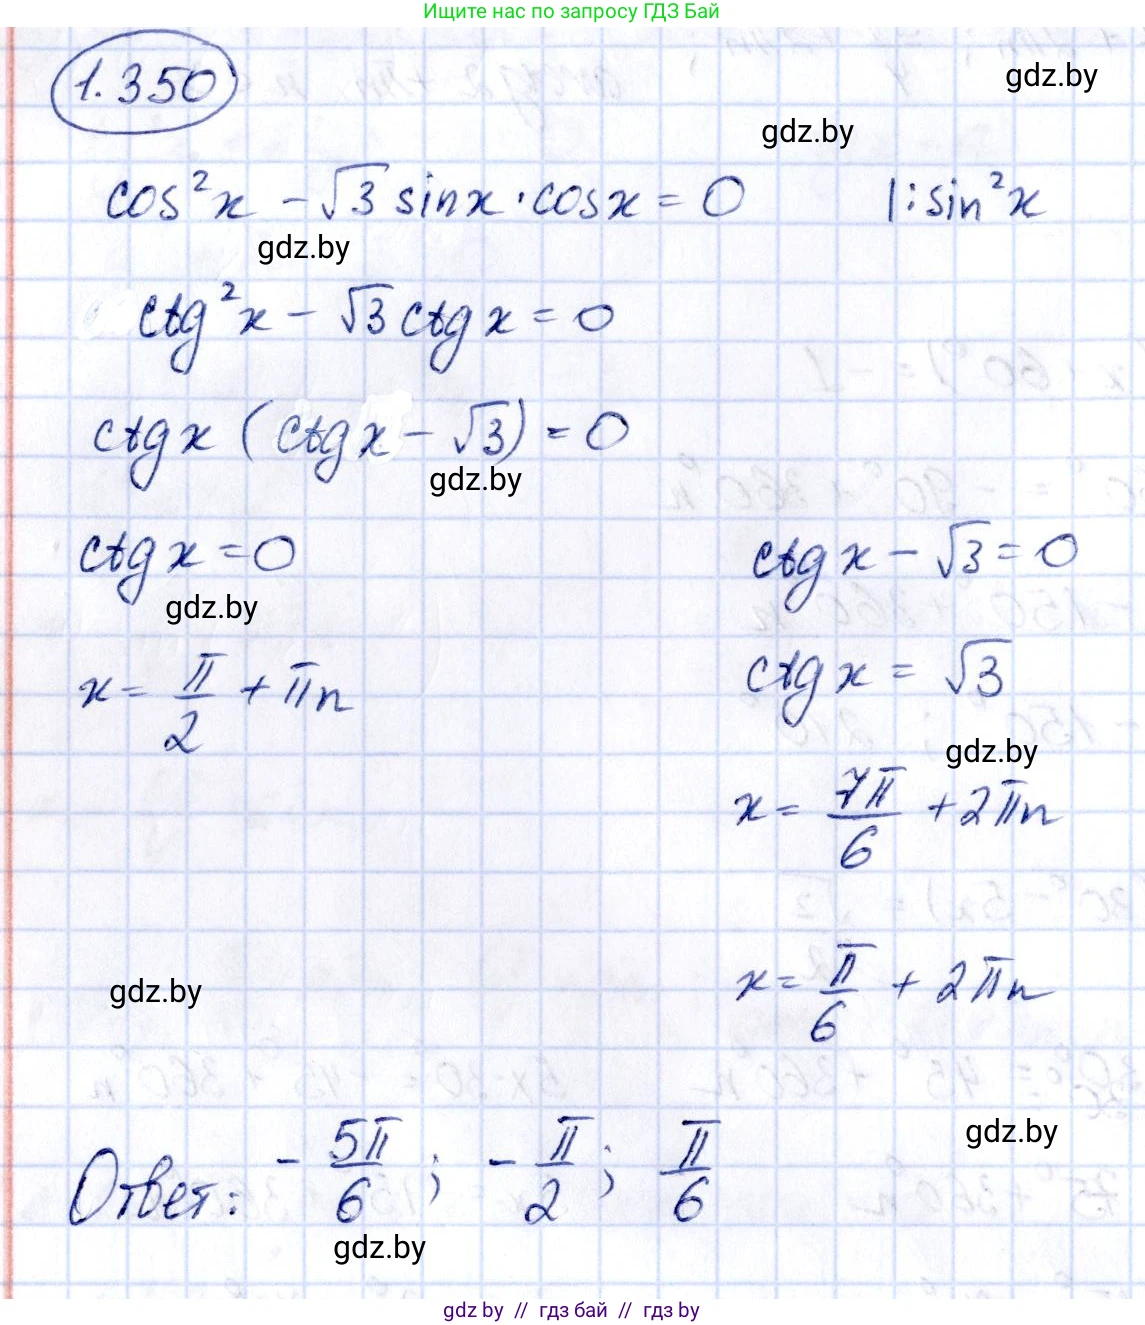 Ищите нас по запросу ГДЗ Бай
1.350
gdz.by
gdz.by
cos²x - √3 sinx · cosx = 0 |: sin²x
gdz.by
ctg²x - √3 ctgx = 0
ctgx (ctgx - √3) = 0
gdz.by
ctgx = 0 ctgx - √3 = 0
gdz.by
ctgx = √3
x = π/2 + πn
gdz.by
x = 7π/6 + 2πn
x = π/6 + 2πn
gdz.by
gdz.by
Ответ: - 5π/6 ; - π/2 ; π/6
gdz.by
gdz by // гдз бай // гдз by